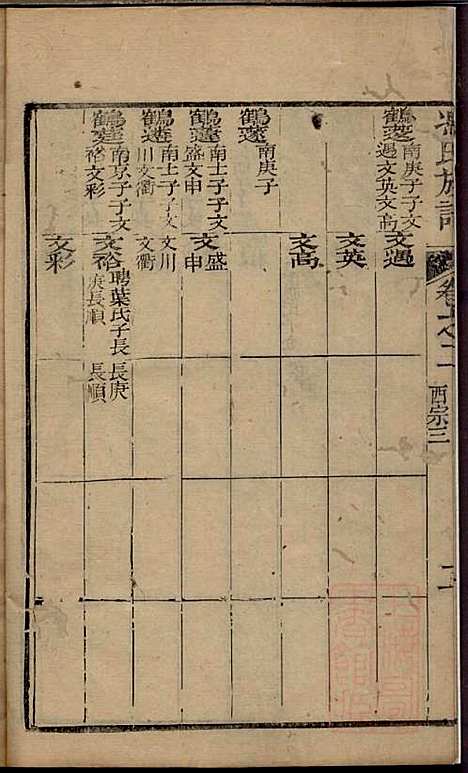 氏族譜
卷之二
西宗三
二
鶴菱 南庚子子文過文英文高
文過
文英
文高
鶴 南庚子
鶴 南士子子文盛文申
文盛
文申
鶴 南士子子文川文衢
文川
文衢
鶴 南京子子文裕文彩
文裕 聘葉氏子長庚長順
長庚
長順
文彩